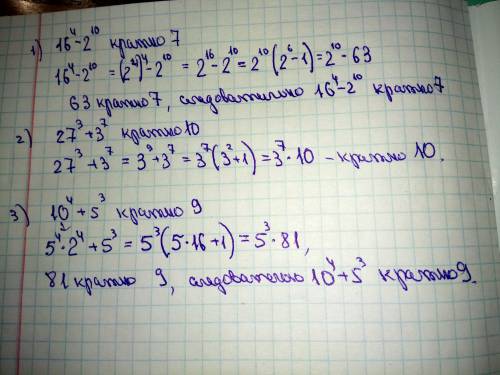 1) 16⁴-2¹⁰ кратно 7
16⁴-2¹⁰ = (2⁴)⁴-2¹⁰ = 2¹⁶-2¹⁰ = 2¹⁰(2⁶-1) = 2¹⁰·63
63 кратно 7, следовательно 16⁴-2¹⁰ кратно 7
2) 27³+3⁷ кратно 10
27³+3⁷ = 3⁹+3⁷ = 3⁷(3²+1) = 3⁷·10 – кратно 10.
3) 10⁴+5³ кратно 9
5⁴·2⁴+5³ = 5³(5·16+1) = 5³·81,
81 кратно 9, следовательно 10⁴+5³ кратно 9.